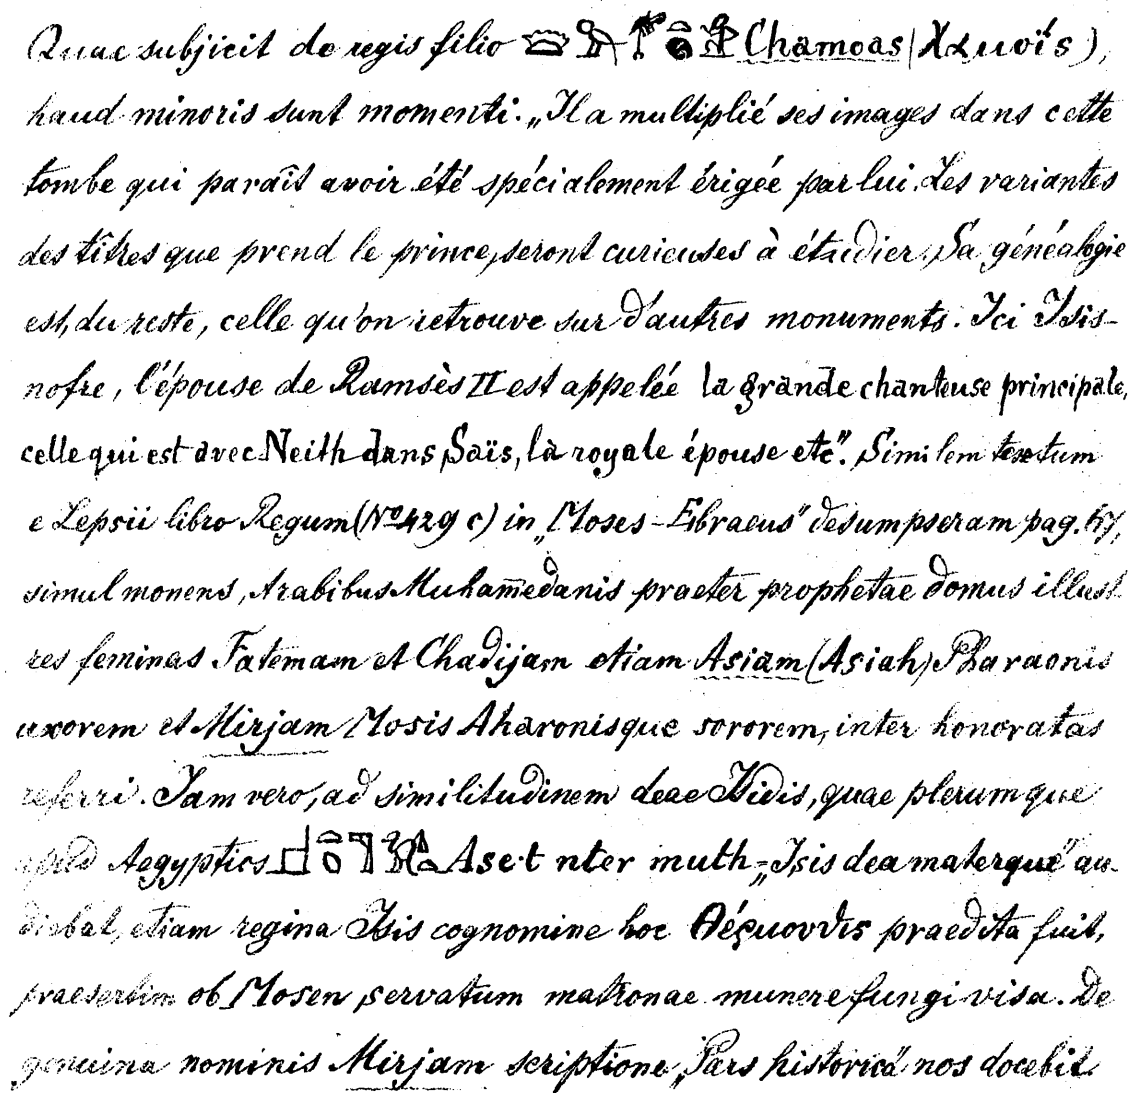 Quae subjicit de regis filio Chamoas (Χαμοΐς),
haud minoris sunt momenti. „Il a multiplié ses images dans cette
tombe qui paraît avoir été spécialement érigée par lui. Les variantes
des tîtres que prend le prince, seront curieuses à étudier. Sa généalogie
est, du reste, celle qu'on retrouve sur d'autres monuments. Ici Isis-
nofre, l'épouse de Ramsès II est appelée la grande chanteuse principale,
celle qui est avec Neith dans Saïs, la royale épouse etc". Similem textum
e Lepsii libro Regum (No 429 c) in „Moses-Ebraeus" desumpseram pag. 67,
simul monens, Arabibus Muham̅edanis praeter prophetae domus illust
res feminas Fatemam et Chadijam etiam Asiam (Asiah) Pharaonis
uxorem et Mirjam Mosis Aharonisque sororem, inter honoratas
referri. Iam vero, ad similitudinem deae Isidis, quae plerumque
apud Aegyptios Ase·t nter muth = „Isis dea materque" au-
diebat, etiam regina Isis cognomine hoc praedita fuit,
praesertim ob Mosen servatum matronae munere fungi visa. De
genuina nominis Mirjam scriptione „Pars historica" nos docebit.